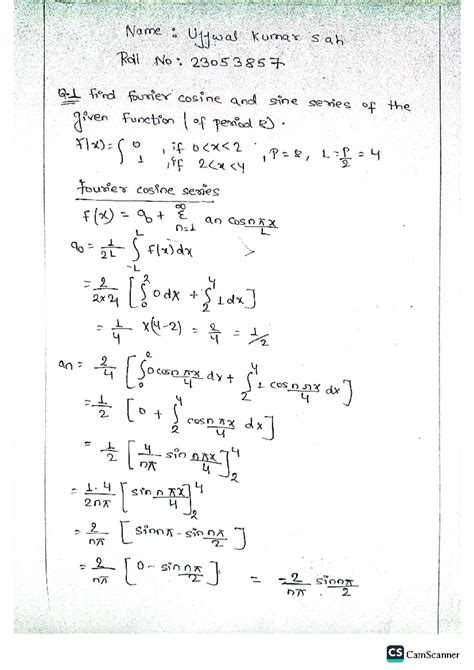 Name : Ujjwal Kumar Sah
Roll No : 23053857
Q.1 find fourier cosine and sine series of the
given function ( of period 8).
f(x) = { 0 , if 0<x<2
1 , if 2<x<4 , P=8, L=P/2=4
fourier cosine series
f(x) = a₀ + Σ_{n=1}^{∞} an cos nπx/L
a₀ = 1/2L ∫_{-L}^{L} f(x)dx
= 2/2x4 [ ∫_0^2 0dx + ∫_2^4 1dx ]
= 1/4 x(4-2) = 2/4 = 1/2
an = 2/4 [ ∫_0^2 0 cos nπx/4 dx + ∫_2^4 1 cos nπx/4 dx ]
= 1/2 [ 0 + ∫_2^4 cos nπx/4 dx ]
= 1/2 [ 4/nπ sin nπx/4 ]_2^4
= 1.4/2nπ [ sin nπx/4 ]_2^4
= 2/nπ [ sin nπ - sin nπ/2 ]
= 2/nπ [ 0 - sin nπ/2 ] = -2/nπ sin nπ/2
CS CamScanner